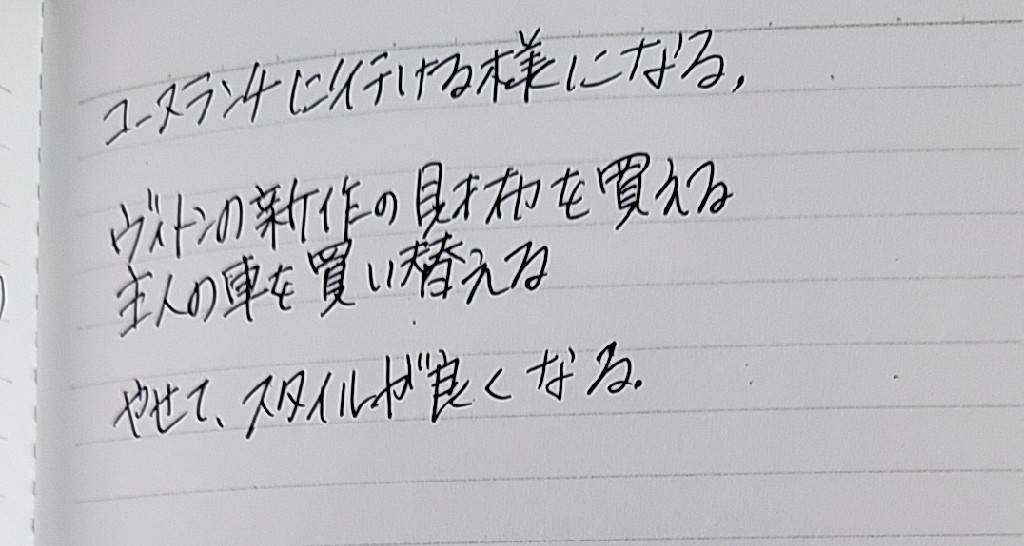 コースランチに行ける様になる,
ヴィトンの新作の財布を買える
主人の車を買い替える
やせて、スタイルが良くなる.